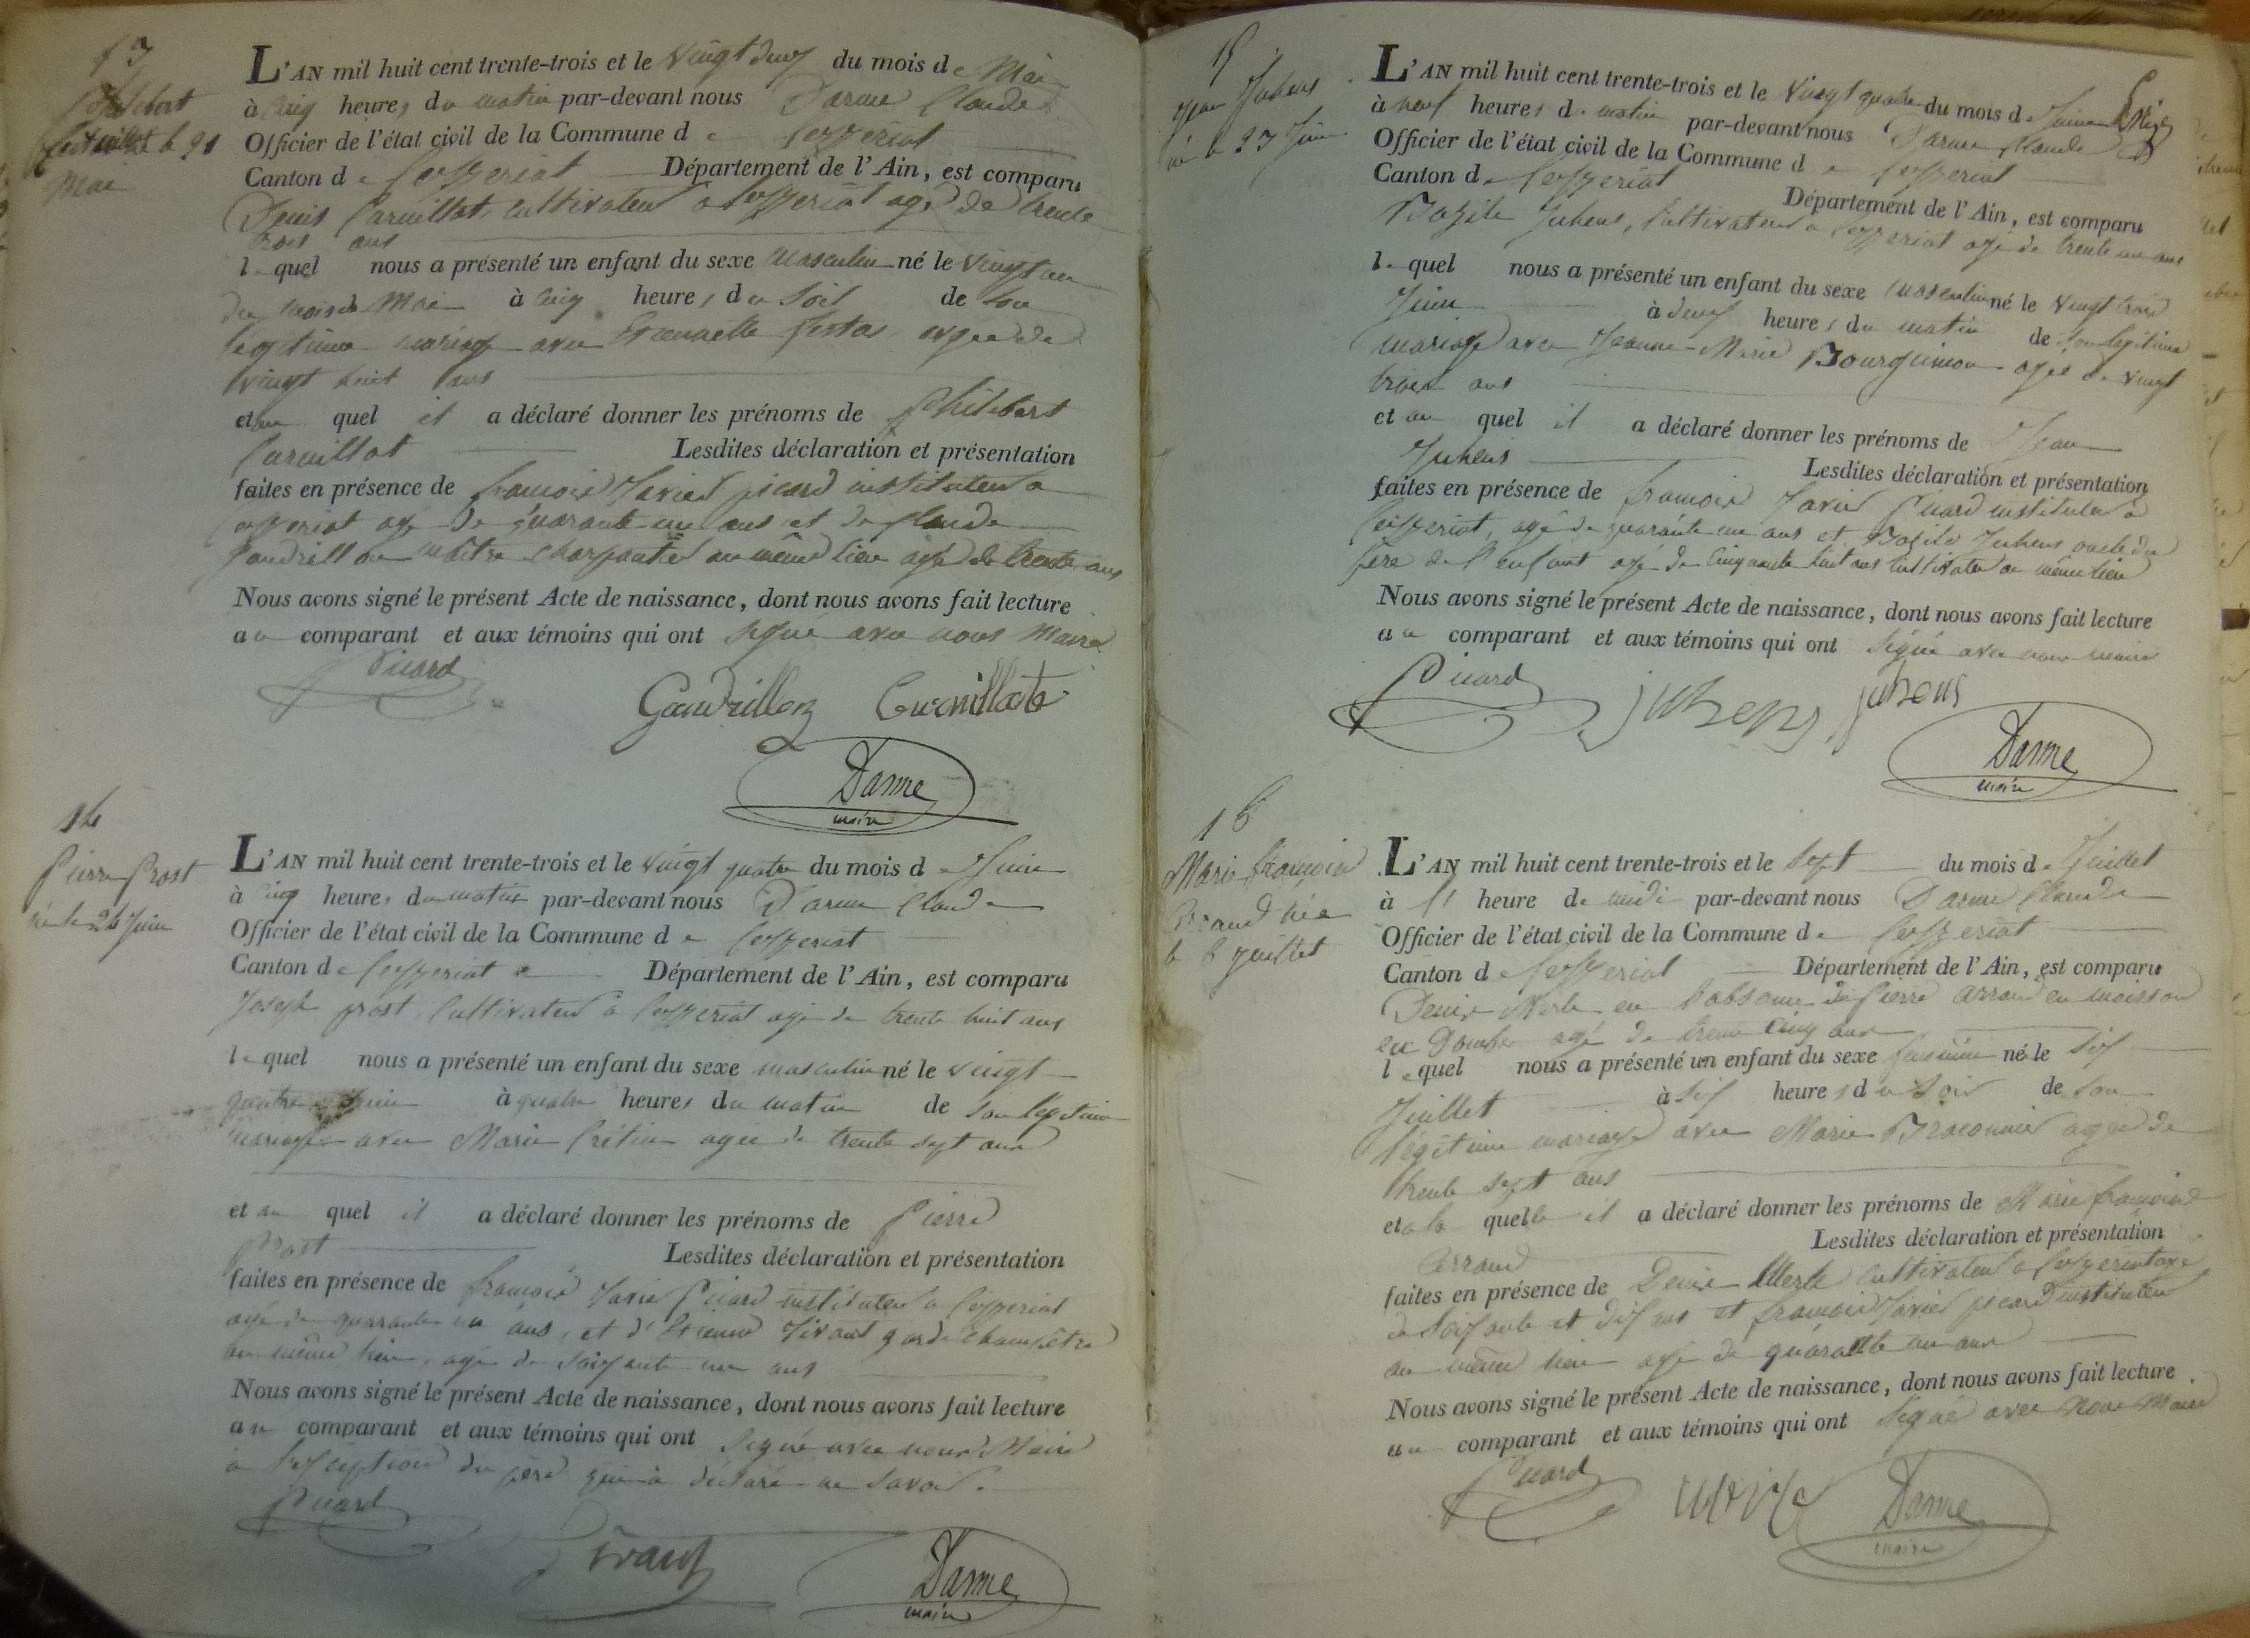 13
Philibert
Cuvillat né le 21
Mai
L'AN mil huit cent trente-trois et le vingt deux du mois de Mai
à cinq heures du matin par-devant nous Darme Claude
Officier de l'état civil de la Commune de Ceyzeriat
Canton de Ceyzeriat Département de l'Ain, est comparu
Denis Cuvillat, cultivateur à Ceyzeriat agé de trente
trois ans
lequel nous a présenté un enfant du sexe masculin né le vingt un
du mois de Mai à cinq heures du soir de son
legitime mariage avec agée de
vingt huit ans
et au quel il a déclaré donner les prénoms de Philibert
Lesdites déclaration et présentation
faites en présence de françois Xavier picard instituteur a
Ceyzeriat agé de quarante un ans et de Claude
Gaudrillon maître charpentier au même lieu agé de trente ans
Nous avons signé le présent Acte de naissance, dont nous avons fait lecture
au comparant et aux témoins qui ont signé avec nous Maire
Picard
Gaudrillon
Darme
maire
14
Pierre Prost
né le 24 Juin
L'AN mil huit cent trente-trois et le vingt quatre du mois de Juin
à cinq heures du matin par-devant nous Darme Claude
Officier de l'état civil de la Commune de Ceyzeriat
Canton de Ceyzeriat Département de l'Ain, est comparu
Joseph prost, cultivateur à Ceyzeriat agé de trente huit ans
lequel nous a présenté un enfant du sexe masculin né le vingt
quatre Juin à quatre heures du matin de son légitime
mariage avec Marie Crétin agée de trente sept ans
et au quel il a déclaré donner les prénoms de Pierre
Prost Lesdites déclaration et présentation
faites en présence de françois Xavier Picard instituteur à Ceyzeriat
agé de quarante un ans, et d'Etienne Vivant garde champêtre
au même lieu, agé de soixante un ans
Nous avons signé le présent Acte de naissance, dont nous avons fait lecture
au comparant et aux témoins qui ont signé avec nous Maire
à l'exception du père qui a déclaré ne savoir.
Picard
Darme
maire
15
Jean Juhens
né le 23 Juin
L'AN mil huit cent trente-trois et le vingt quatre du mois de Juin
à neuf heures du matin par-devant nous Darme Claude
Officier de l'état civil de la Commune de Ceyzeriat
Canton de Ceyzeriat Département de l'Ain, est comparu
Bazile Juhens, cultivateur à Ceyzeriat agé de trente un ans
lequel nous a présenté un enfant du sexe masculin né le vingt trois
Juin à deux heures du matin de son légitime
mariage avec Jeanne-Marie Bourguinon agée de vingt
trois ans
et au quel il a déclaré donner les prénoms de Jean
Juhens Lesdites déclaration et présentation
faites en présence de françois Xavier Picard instituteur à
Ceyzeriat, agé de quarante un ans et Bazile Juhens oncle du
père de l'enfant agé de cinquante huit ans cultivateur au même lieu
Nous avons signé le présent Acte de naissance, dont nous avons fait lecture
au comparant et aux témoins qui ont signé avec nous maire
Picard
juhens juhens
Darme
maire
16
Marie françoise
Arraud née
le 6 juillet
L'AN mil huit cent trente-trois et le sept du mois de Juillet
à l' heure de midi par-devant nous Darme Claude
Officier de l'état civil de la Commune de Ceyzeriat
Canton de Ceyzeriat Département de l'Ain, est comparu
Denis Merle en l'absence de Pierre Arraud en moisson
en Dombe agé de trente cinq ans
lequel nous a présenté un enfant du sexe feminin né le six
Juillet à six heures du soir de son
légitime mariage avec Marie Braconnier agée de
trente sept ans
et à la quelle il a déclaré donner les prénoms de Marie françoise
Arraud Lesdites déclaration et présentation
faites en présence de Denis Merle cultivateur à Ceyzeriat agé
de soixante et dix ans et françois Xavier picard instituteur
au même lieu agé de quarante un ans
Nous avons signé le présent Acte de naissance, dont nous avons fait lecture
au comparant et aux témoins qui ont signé avec Nous Maire
Picard
Darme
maire